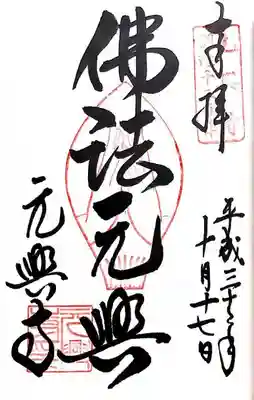 奉拝
平成年
十月十七日
佛法元興
元興寺